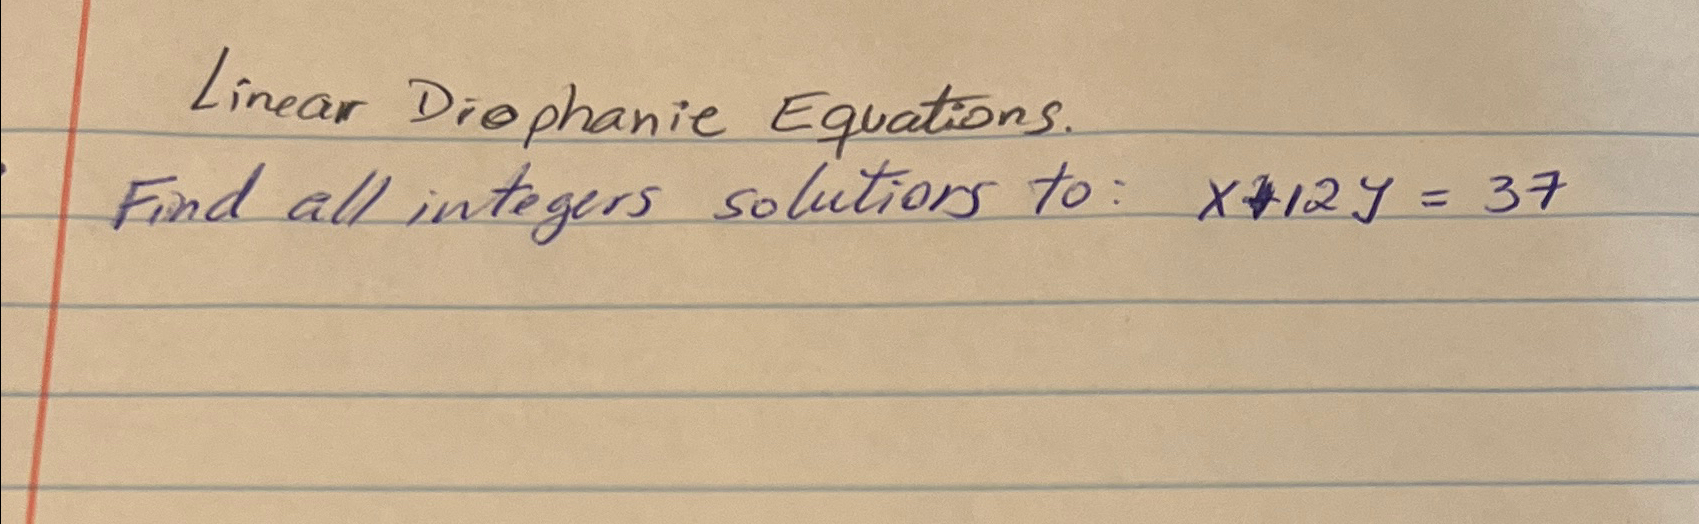 Linear Diophanie Equations.
Find all integers solutions to: x+12y = 37